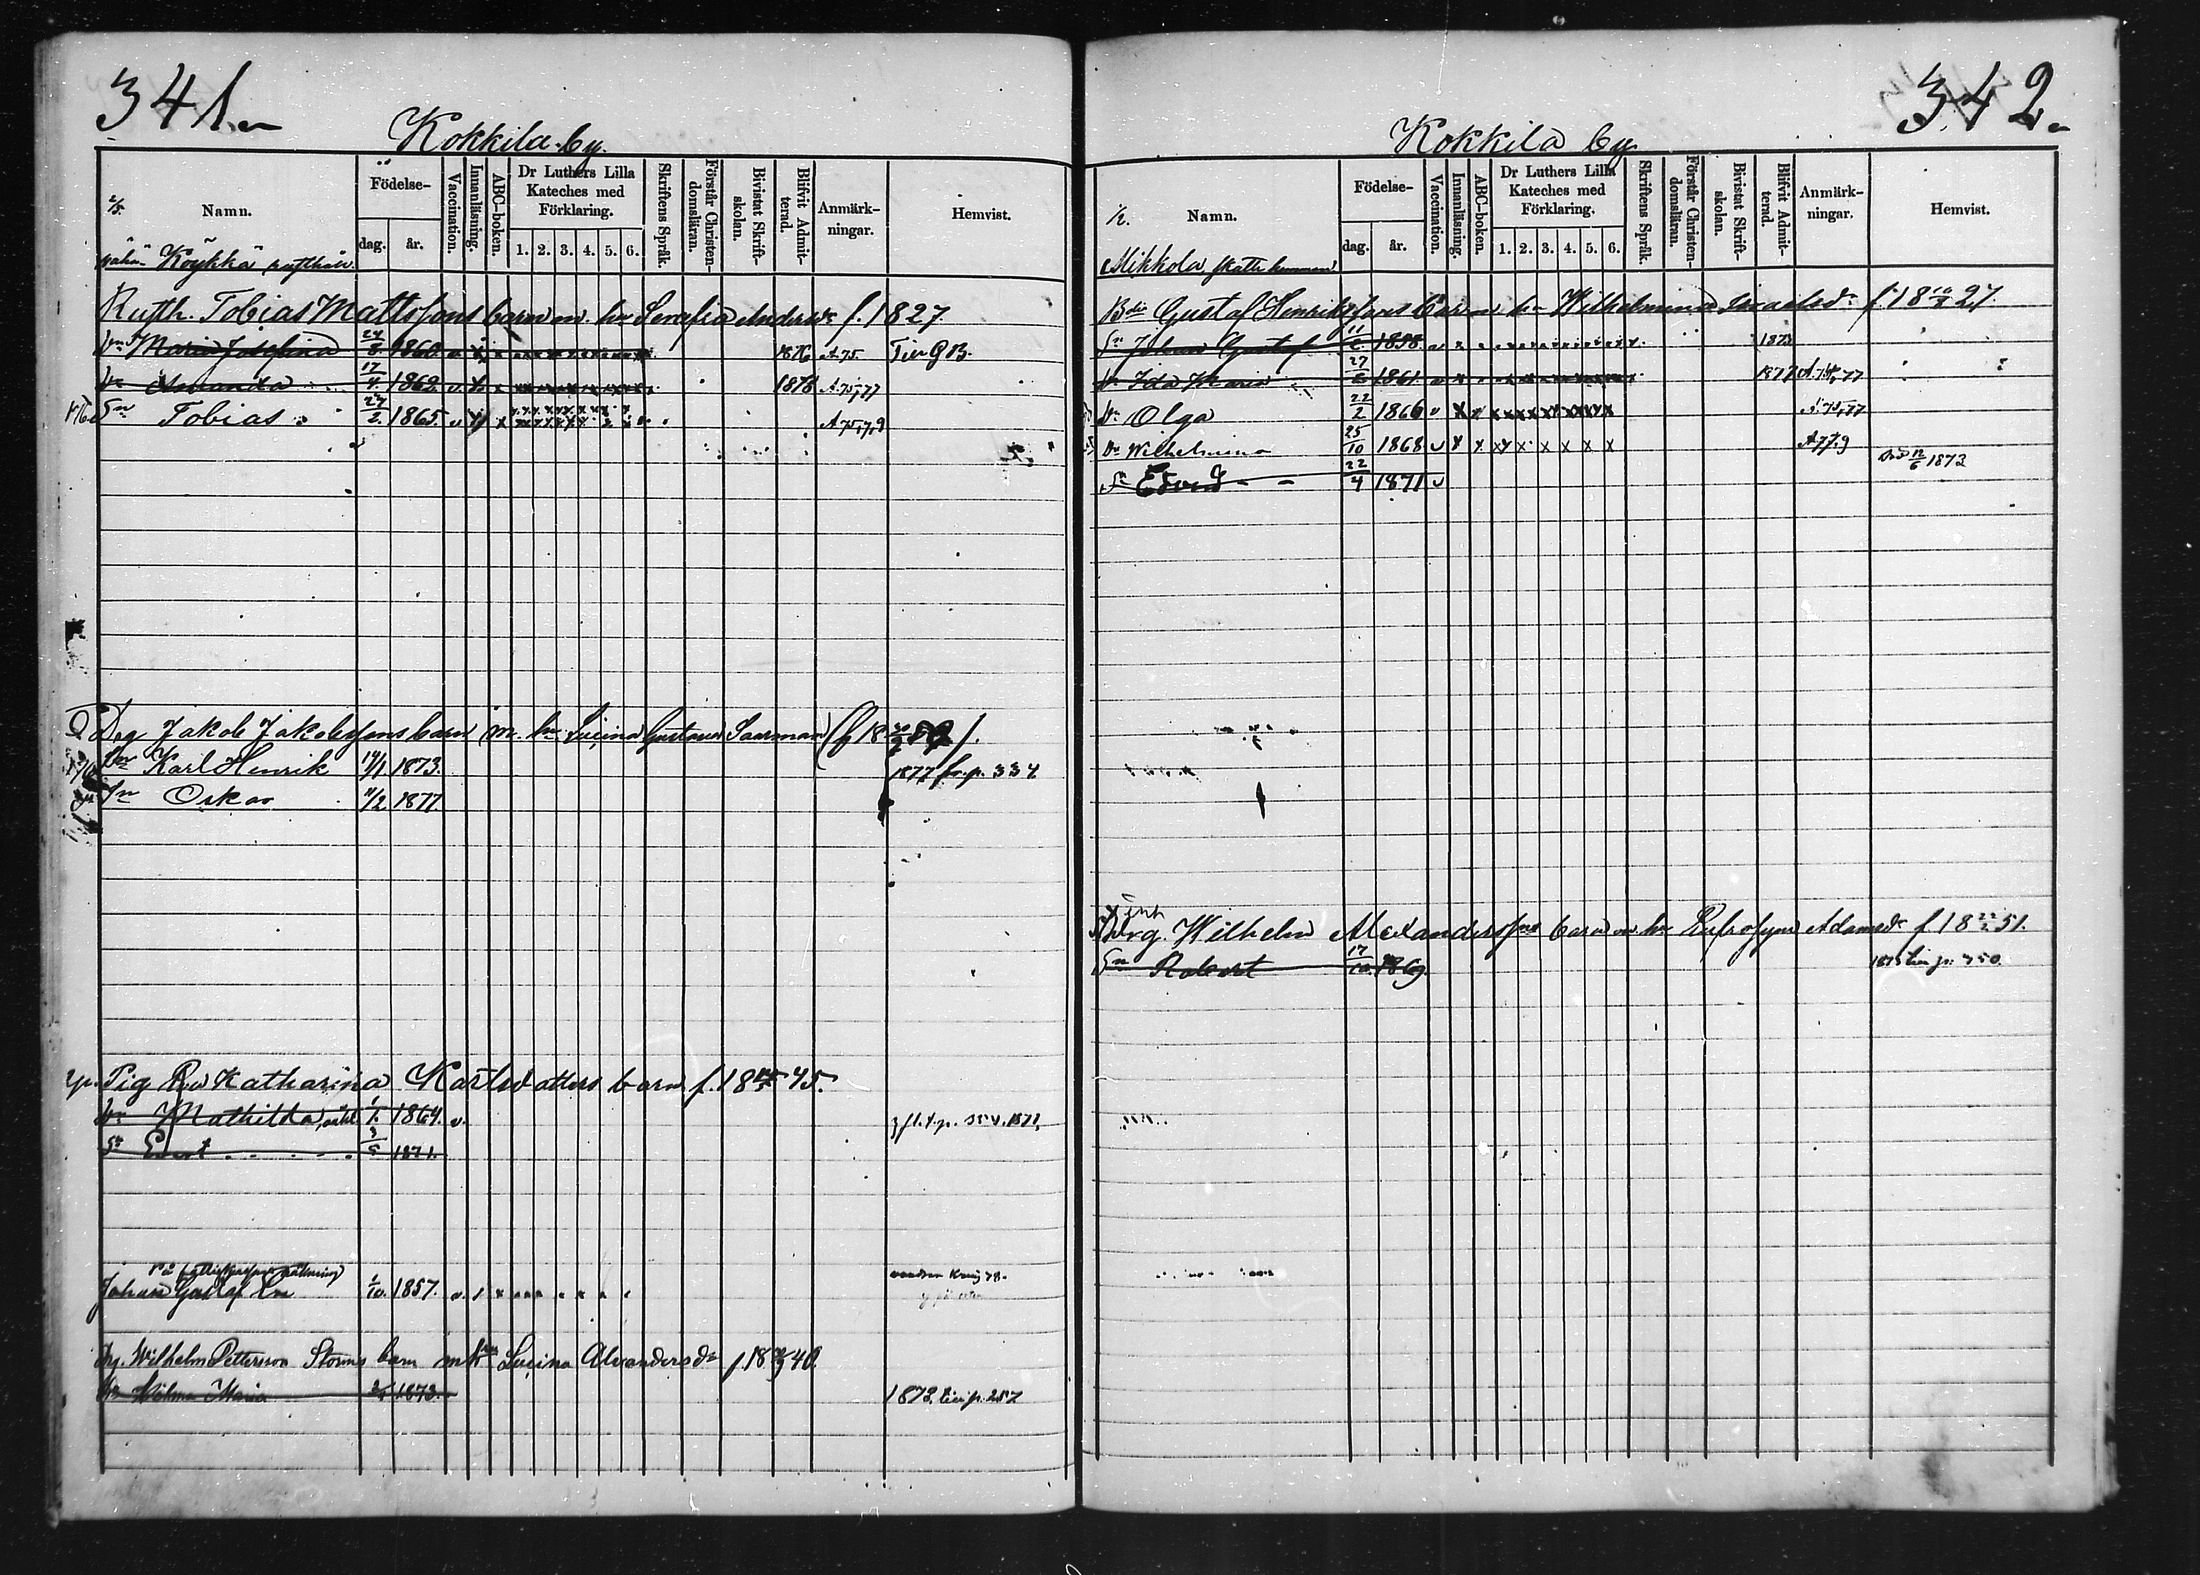 341.
Kokkila by.
Namn.
Födelse-
dag.
år.
Vaccination.
Innanläsning.
ABC-boken.
Dr Luthers Lilla Kateches med Förklaring.
1. 2. 3. 4. 5. 6.
Skriftens Språk.
Förstår Christen-domsläran.
Bivistat Skrift-skolan.
Blifvit Admit-terad.
Anmärk-ningar.
Hemvist.
Köykkä
Rusth. Tobias Mattssons barn m. hu Serafia Andersdr f. 1827.
Maria Josefina 1860 v 1876 A 75. Till GB.
Amanda 17/4 1862 v 1878 A 75,77
Sn Tobias 27/2 1865 v A 75,7,9
Drg Jakob Jakobssons barn m. hu Lucina Gustava Saarman
Sn Karl Henrik 1873. 1877 fr. p. 334
Sn Oskar 11/2 1877.
Pig Eva Katharina Karlsdotters barn f. 18 45.
Dr Mathilda, 1/1 1864. v.
Sn Evert 3/5 1871.
Johan Gustaf 1/10. 1857. v.
Drg. Wilhelm Pettersson Storms barn m hu Lucina Alexandersdr f. 18 40.
Dr Wilma Maria 1873. 1873 till p. 257
342.
Kokkila by
Namn.
Födelse-
dag.
år.
Vaccination.
Innanläsning.
ABC-boken.
Dr Luthers Lilla Kateches med Förklaring.
1. 2. 3. 4. 5. 6.
Skriftens Språk.
Förstår Christen-domsläran.
Bivistat Skrift-skolan.
Blifvit Admit-terad.
Anmärk-ningar.
Hemvist.
Mikkola skatte hemman
Gustaf Henrikssons barn m. hu Wilhelmina Isaaksdr f. 18 27.
Sn Johan Gustaf 1858. v
Dr Ida Maria 27/2 1861. v 1877
Dr Olga 22/2 1866 v A 75,77
Dr Wilhelmina 25/10 1868 v A 77,9
Sn Edvard 22/4 1871 v död 12/6 1873
Drg. Wilhelm Alexanderssons barn m hu Eufrosyne Adamsdr f 18 51.
Sn Robert 17/10. 1869. 1873 till p. 350